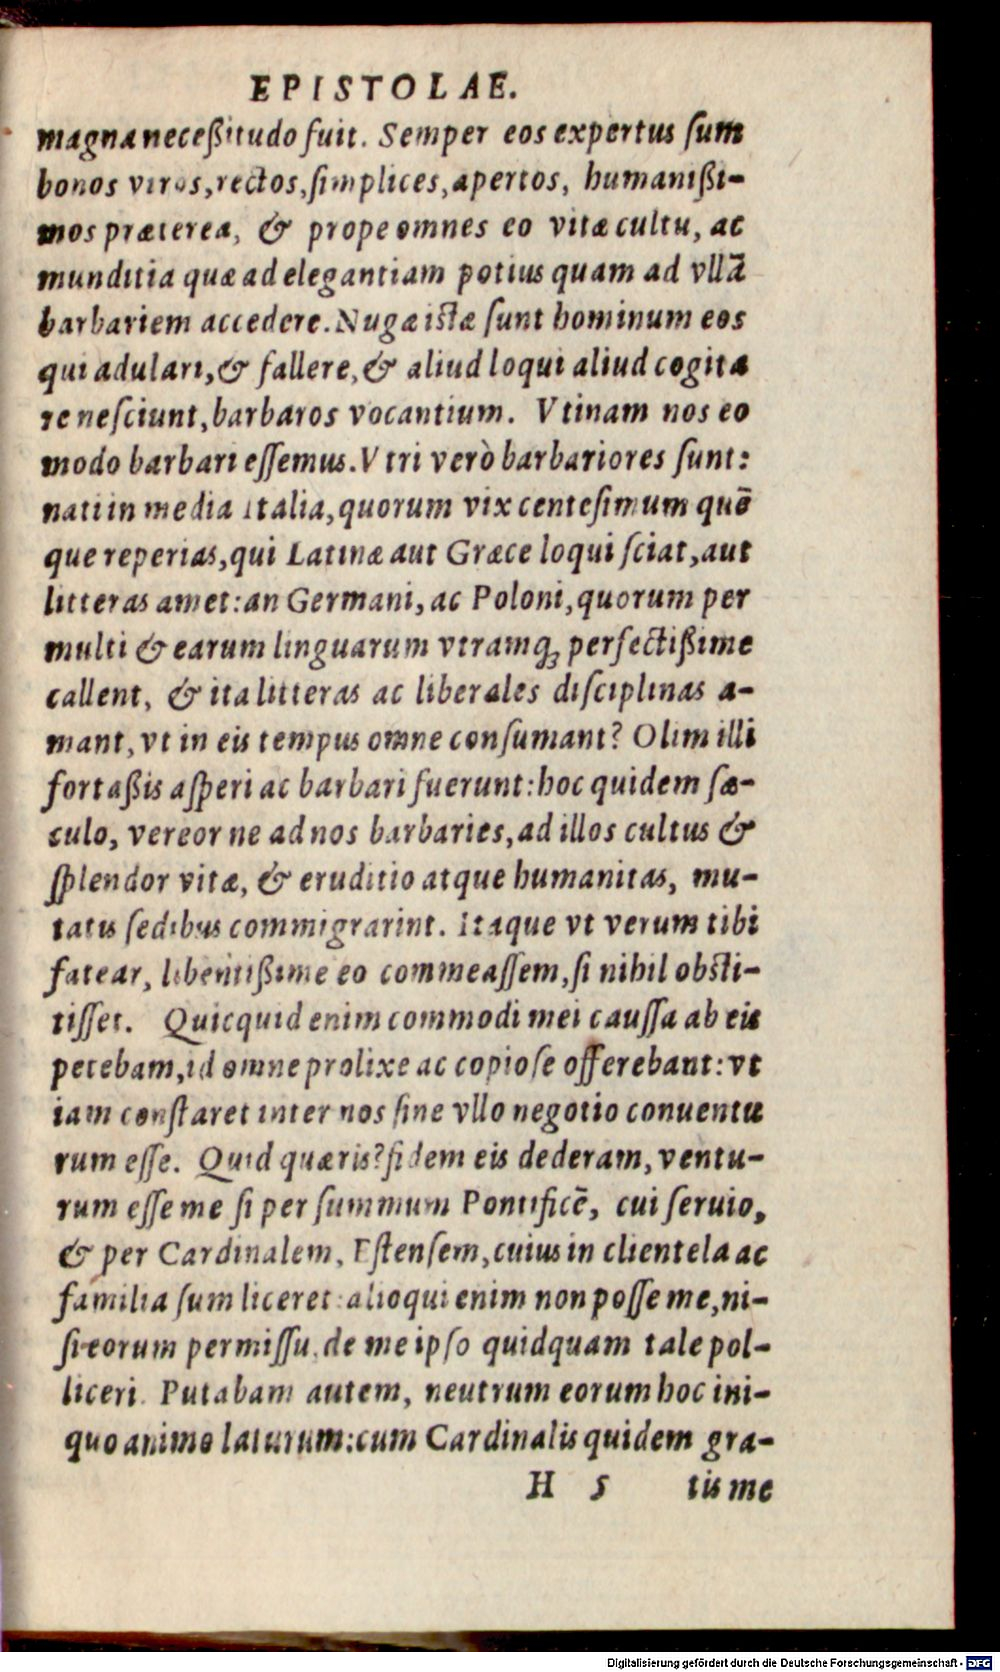 EPISTOLAE.
magna neceßitudo fuit. Semper eos expertus ſum
bonos viros, rectos, ſimplices, apertos, humanißi-
mos præterea, & prope omnes eo vitæ cultu, ac
munditia quæ ad elegantiam potius quam ad vllā
barbariem accedere. Nugæ istæ ſunt hominum eos
qui adulari, & fallere, & aliud loqui aliud cogita
re neſciunt, barbaros vocantium. Vtinam nos eo
modo barbari eſſemus. Vtri verò barbariores ſunt:
nati in media Italia, quorum vix centeſimum quē
que reperias, qui Latinæ aut Græce loqui ſciat, aut
litteras amet: an Germani, ac Poloni, quorum per
multi & earum linguarum vtramq; perfectißime
callent, & ita litteras ac liberales diſciplinas a-
mant, vt in eis tempus omne conſumant? Olim illi
fortaßis aſperi ac barbari fuerunt: hoc quidem ſæ-
culo, vereor ne ad nos barbaries, ad illos cultus &
ſplendor vitæ, & eruditio atque humanitas, mu-
tatis ſedibus commigrarint. Itaque vt verum tibi
fatear, libentißime eo commeaſſem, ſi nihil obsti-
tiſſet. Quicquid enim commodi mei cauſſa ab eis
petebam, id omne prolixe ac copioſe offerebant: vt
iam conſtaret inter nos ſine vllo negotio conuentu
rum eſſe. Quid quæris? fidem eis dederam, ventu-
rum eſſe me ſi per ſummum Pontificē, cui ſeruio,
& per Cardinalem, Eſtenſem, cuius in clientela ac
familia ſum liceret: alioqui enim non poſſe me, ni-
ſi eorum permiſſu, de me ipſo quidquam tale pol-
liceri. Putabam autem, neutrum eorum hoc ini-
quo animo laturum: cum Cardinalis quidem gra-
H 5 tis me
Digitalisierung gefördert durch die Deutsche Forschungsgemeinschaft - DFG